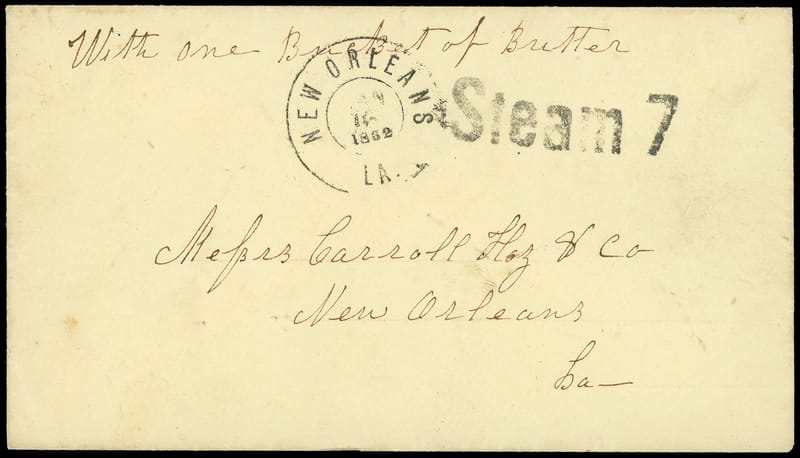 With one Bucket of Butter
NEW ORLEANS
1862
LA.
Steam 7
Messrs Carroll Hoy & Co
New Orleans
La